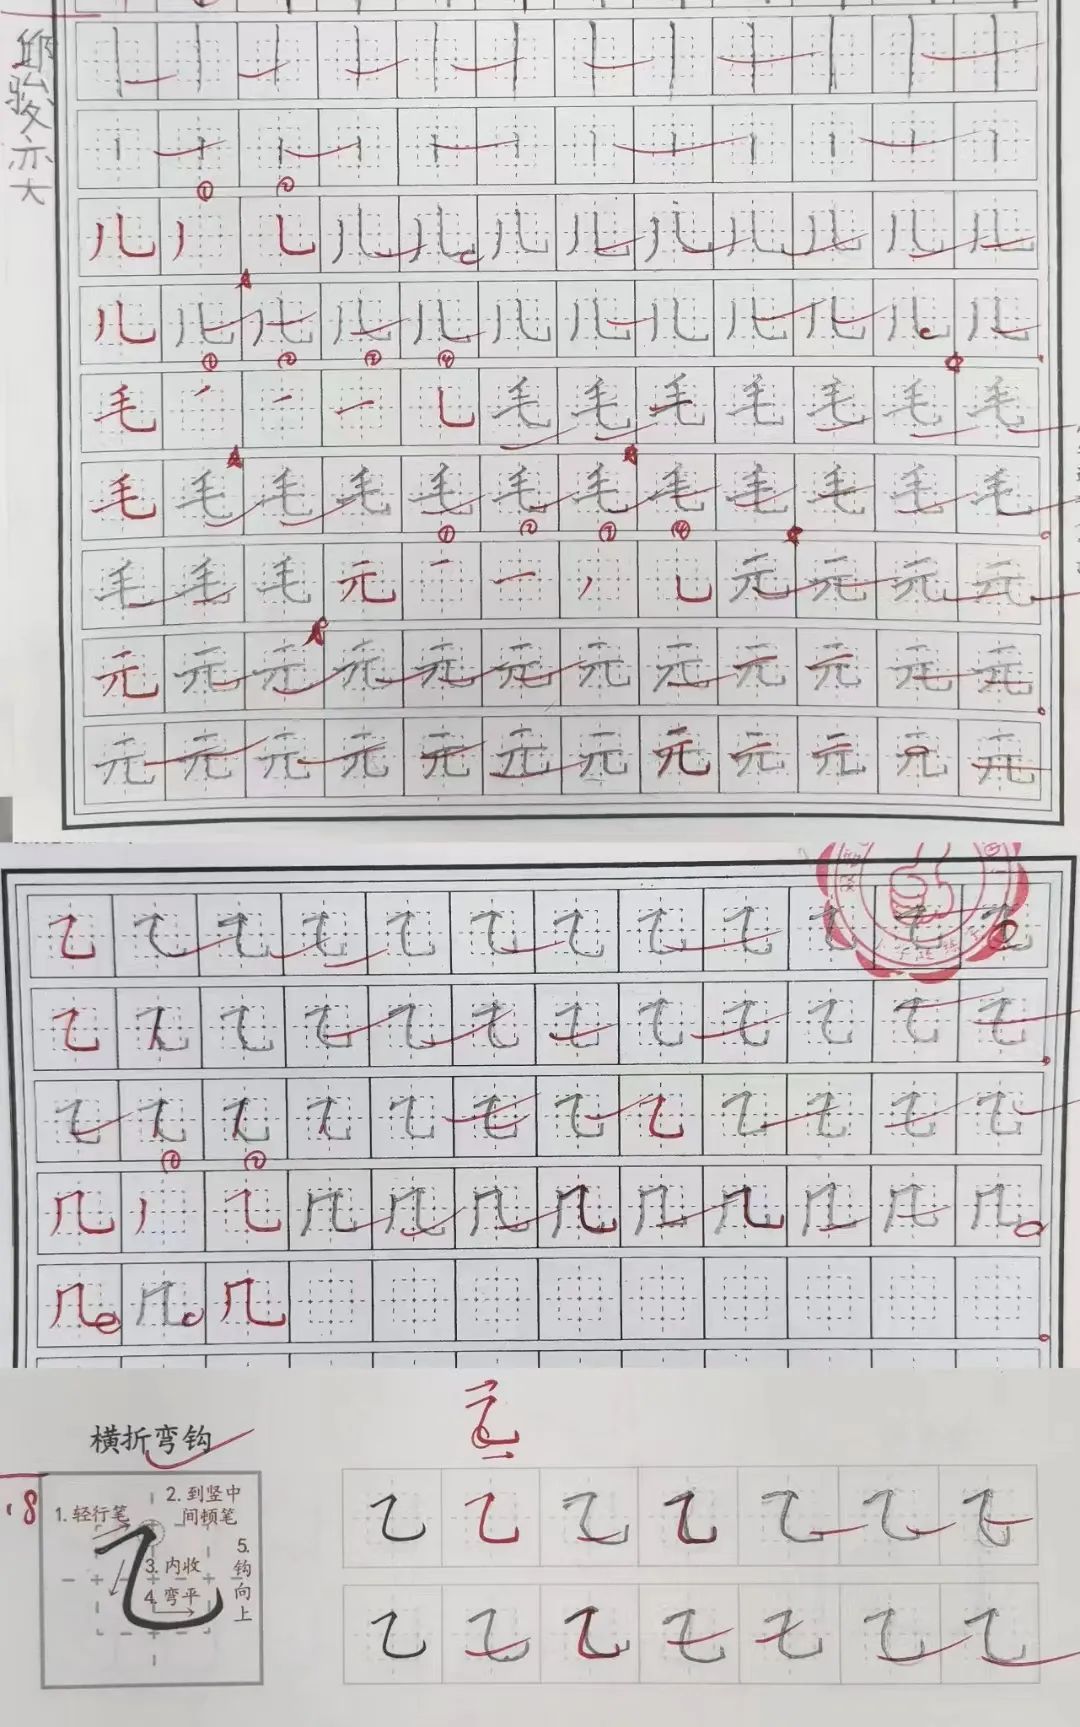 邱骏亦大
丨 丨 丨 丨 丨 丨 丨 丨 丨 丨 丨 丨
丨 丨 丨 丨 丨 丨 丨 丨 丨 丨 丨 丨
① ②
儿 丿 乚 儿 儿 儿 儿 儿 儿 儿 儿 儿
儿 儿 儿 儿 儿 儿 儿 儿 儿 儿 儿 儿
① ② ③ ④
毛 丿 一 一 乚 毛 毛 毛 毛 毛 毛 毛
毛 毛 毛 毛 毛 毛 毛 毛 毛 毛 毛 毛
① ② ③ ④
毛 毛 毛 元 一 一 丿 乚 元 元 元 元
元 元 元 元 元 元 元 元 元 元 元 元
元 元 元 元 元 元 元 元 元 元 元 元
乙 乙 乙 乙 乙 乙 乙 乙 乙 乙 乙 乙
乙 乙 乙 乙 乙 乙 乙 乙 乙 乙 乙 乙
乙 乙 乙 乙 乙 乙 乙 乙 乙 乙 乙 乙
① ②
几 丿 乙 几 几 几 几 几 几 几 几 几
几 几 几
横折弯钩
18
1. 轻行笔
2. 到竖中
间顿笔
3. 内收
4. 弯平
5.
钩
向
上
乙
乙 乙 乙 乙 乙 乙 乙
乙 乙 乙 乙 乙 乙 乙